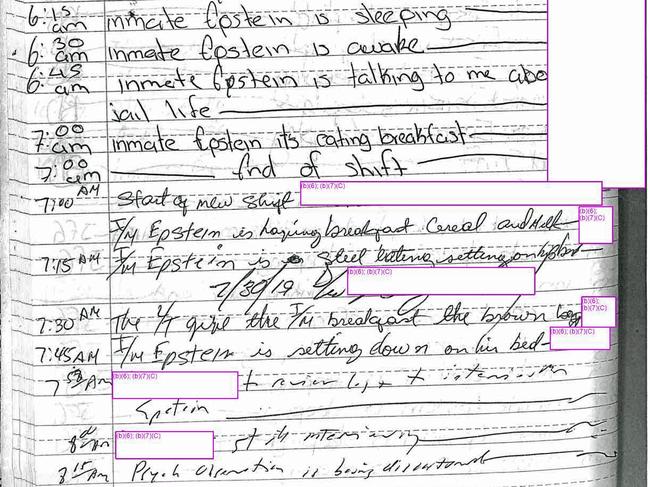 6:15 am inmate Epstein is sleeping
6:30 am inmate Epstein is awake
6:45 am inmete Epstein is talking to me abo
jail life
7:00 am inmate Epstein its eating breakfast
7:00 am end of shift
7:00 AM Start of new shift (b)(6); (b)(7)(C)
I/M Epstein is having breakfast Cereal and Milk (b)(6); (b)(7)(C)
7:15 AM I/M Epstein is steel eating setting on his
7/30/19 (b)(6); (b)(7)(C)
7:30 AM The give the I/M breakfast the brown bag (b)(6); (b)(7)(C)
7:45 AM I/M Epstein is setting down on his bed (b)(6); (b)(7)(C)
Am (b)(6); (b)(7)(C) review log
Epstein
Am (b)(6); (b)(7)(C) interviewing
8:15 Am Psych Observation is being